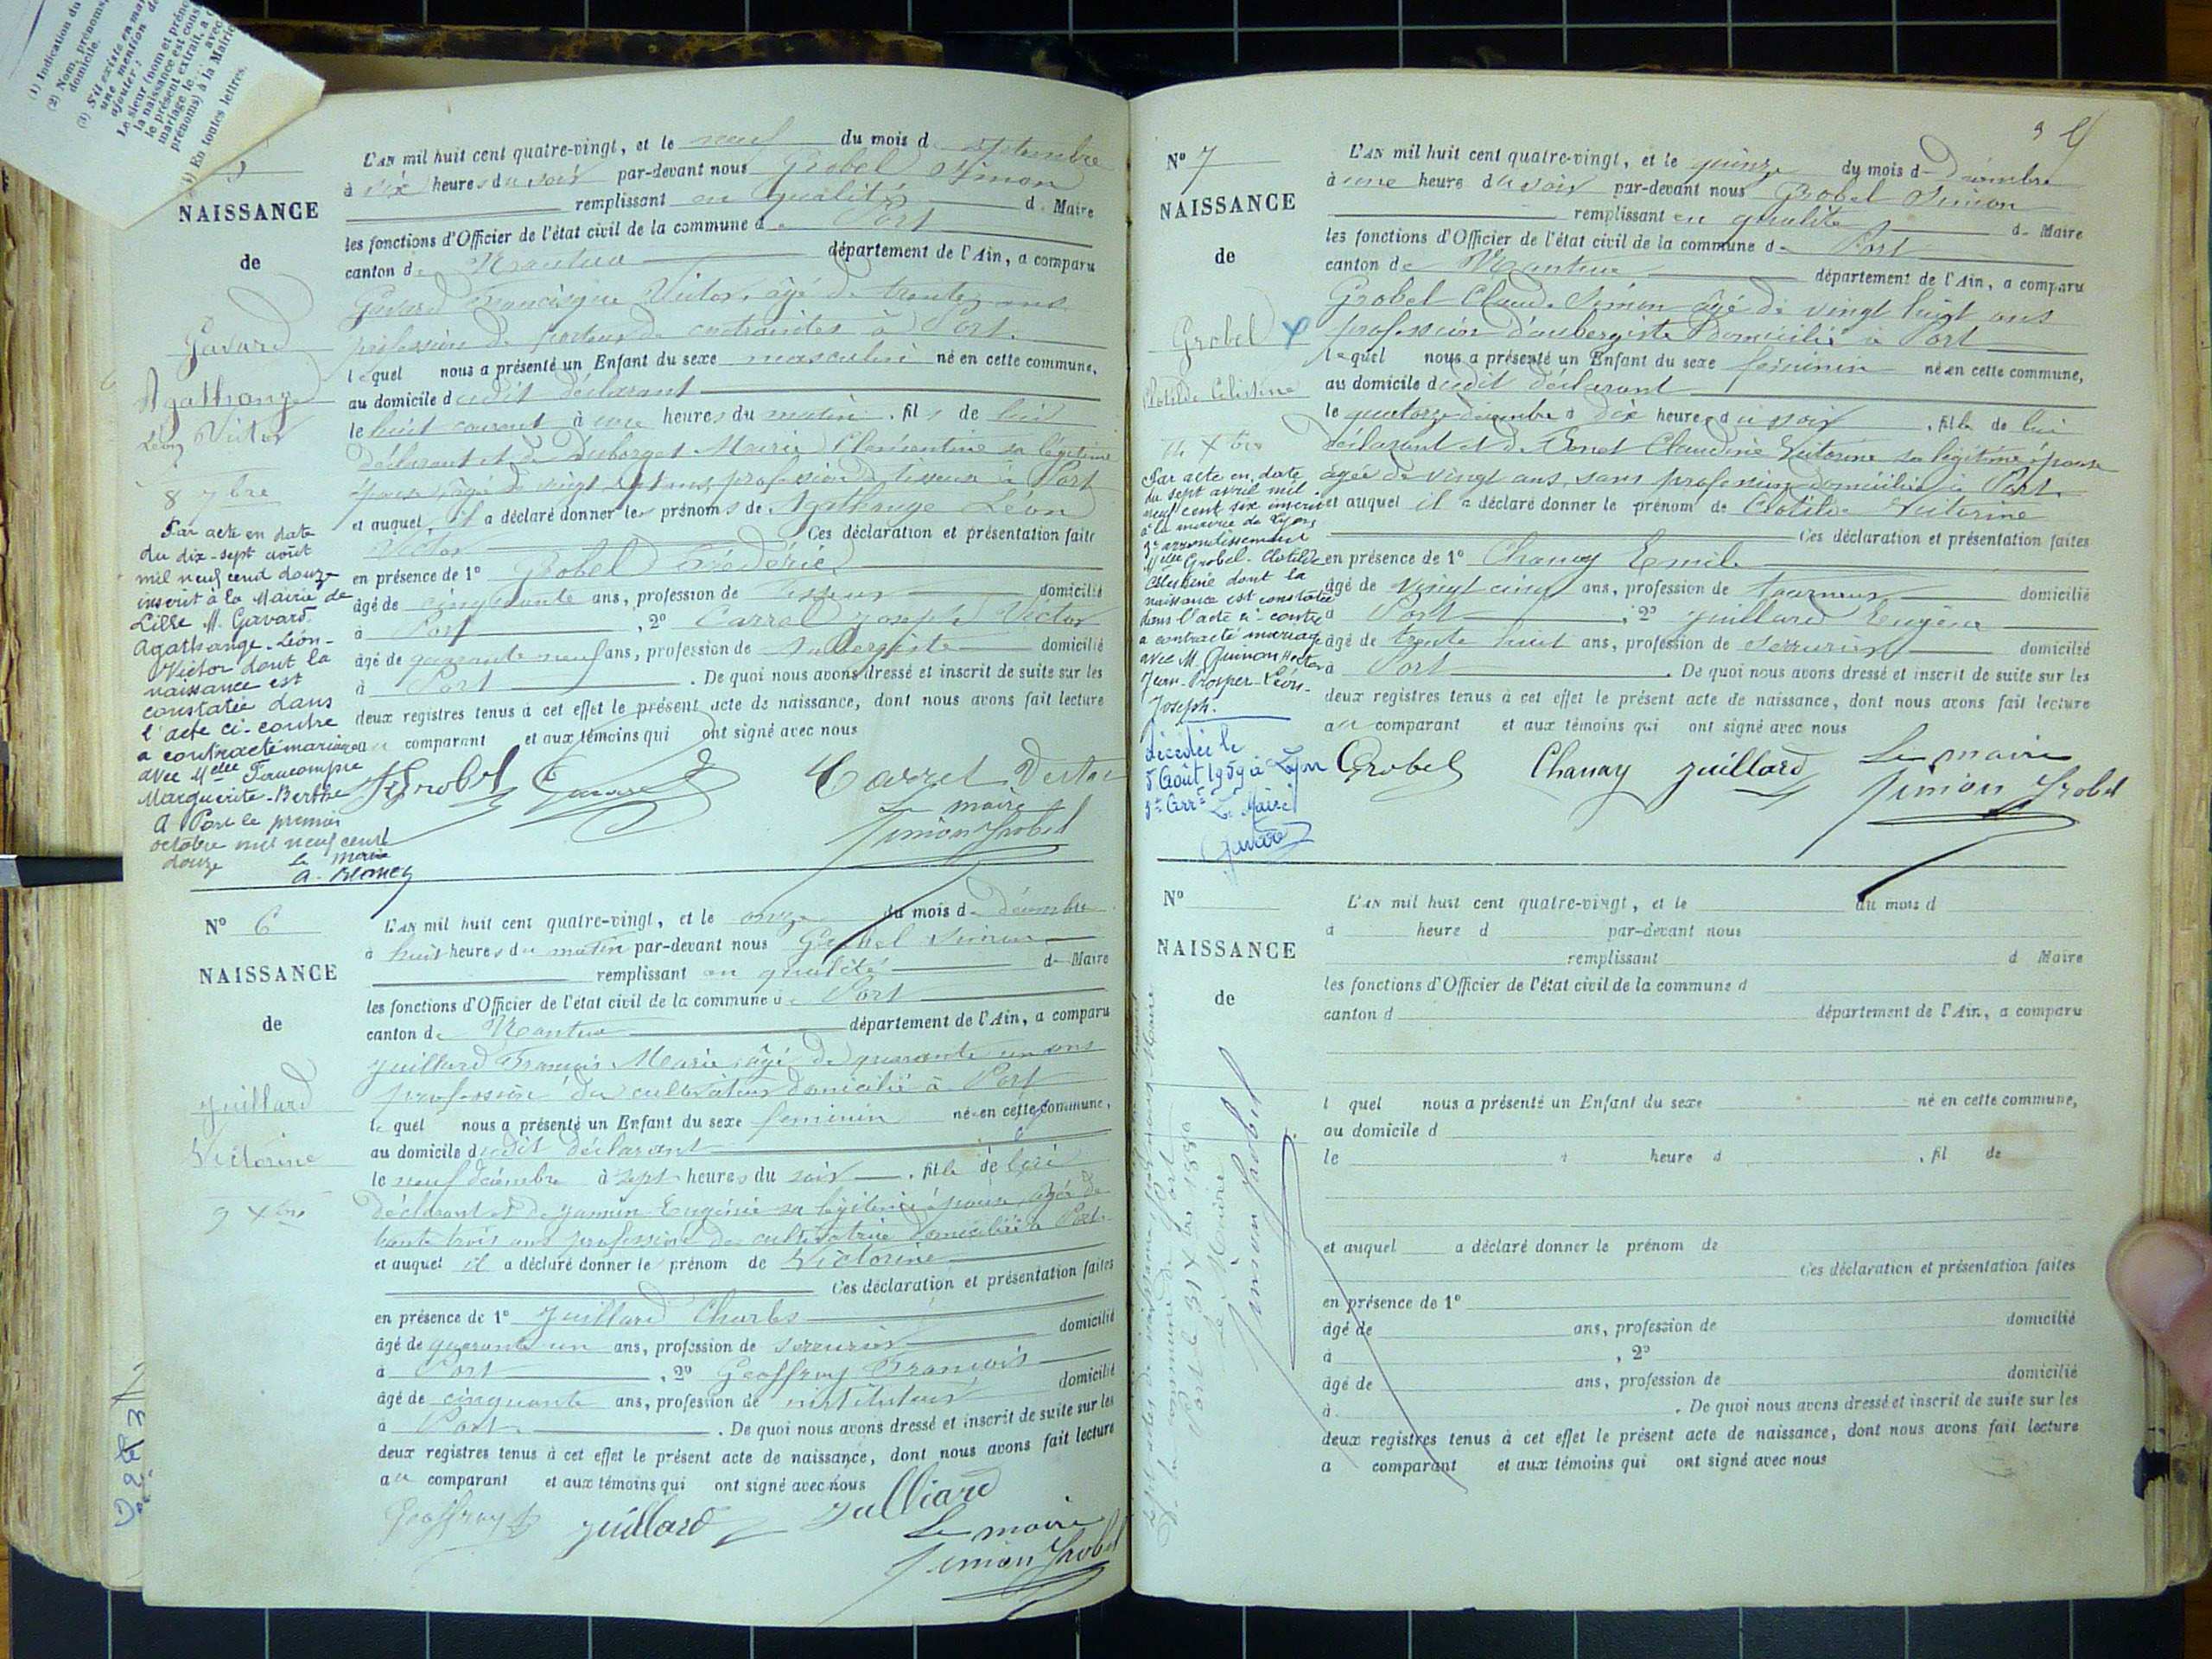 (1) Indication du
(2) Nom, prénoms,
domicile.
(3) S'il existe en mar
une mention de
ajouter :
Le sieur (nom et préno
la naissance est cons
le présent extrait, a c
mariage le ... avec
prénoms) à la Mairie
(4) En toutes lettres.
NAISSANCE
de
Gavard
Agathange
Léon Victor
8 7bre
Par acte en date
du dix-sept août
mil neuf cent douze
inscrit à la Mairie de
Lille M. Gavard
Agathange-Léon-
Victor dont la
naissance est
constatée dans
l'acte ci-contre
a contracté mariage
avec Melle Faucompré
Marguerite-Berthe
A Port le premier
octobre mil neuf cent
douze
Le maire
L'AN mil huit cent quatre-vingt, et le neuf du mois d septembre
à six heures du soir par-devant nous Grobel Simon
remplissant en qualité de Maire
les fonctions d'Officier de l'état civil de la commune de Port
canton de Nantua département de l'Ain, a comparu
Gavard Francisque Victor, âgé de trente ans
profession de facteur de contraintes à Port.
lequel nous a présenté un Enfant du sexe masculin né en cette commune,
au domicile dudit déclarant
le huit courant à une heures du matin, fils de lui
déclarant et de Duborget Marie Clémentine sa légitime
épouse, âgée de vingt sept ans, profession de tisseuse à Port
et auquel il a déclaré donner les prénoms de Agathange Léon
Victor Ces déclaration et présentation faite
en présence de 1° Grobel Frédéric
âgé de cinquante ans, profession de tisseur domicilié
à Port, 2° Carrel Joseph Victor
âgé de quarante neuf ans, profession de aubergiste domicilié
à Port. De quoi nous avons dressé et inscrit de suite sur les
deux registres tenus à cet effet le présent acte de naissance, dont nous avons fait lecture
au comparant et aux témoins qui ont signé avec nous
Grobel Gavard Carrel Victor
Le maire
Simon Grobel
N° 6
NAISSANCE
de
Juillard
Victorine
9 Xbre
L'AN mil huit cent quatre-vingt, et le onze du mois de décembre
à huit heures du matin par-devant nous Grobel Simon
remplissant en qualité de Maire
les fonctions d'Officier de l'état civil de la commune de Port
canton de Nantua département de l'Ain, a comparu
Juillard François Marie, âgé de quarante un ans
profession de cultivateur domicilié à Port
lequel nous a présenté un Enfant du sexe feminin né en cette commune,
au domicile dudit déclarant
le neuf décembre à sept heures du soir, fille de lui
déclarant et de Jannin Eugénie sa légitime épouse, âgée de
trente trois ans profession de cultivatrice domiciliée à Port.
et auquel il a déclaré donner le prénom de Victorine
Ces déclaration et présentation faites
en présence de 1° Juillard Charles
âgé de quarante un ans, profession de serrurier domicilié
à Port, 2° Geoffray François
âgé de cinquante ans, profession de instituteur domicilié
à Port. De quoi nous avons dressé et inscrit de suite sur les
deux registres tenus à cet effet le présent acte de naissance, dont nous avons fait lecture
au comparant et aux témoins qui ont signé avec nous
Geoffray Juillard Julliard
Le maire
Simon Grobel
N° 7
NAISSANCE
de
Grobel
Clotilde Célestine
14 Xbre
Par acte en date
du sept avril mil
neuf cent six inscrit
à la mairie de Lyon
arrondissement
Melle Grobel Clotilde
Célestine dont la
naissance est constatée
dans l'acte ci-contre
a contracté mariage
avec M. Guinon Hector
Jean-Prosper-Léon-
Joseph.
décédée le
5 Août 1959 à Lyon
Le Maire
Gavard
L'AN mil huit cent quatre-vingt, et le quinze du mois de décembre
à une heure du soir par-devant nous Grobel Simon
remplissant en qualité de Maire
les fonctions d'Officier de l'état civil de la commune de Port
canton de Nantua département de l'Ain, a comparu
Grobel Claude Simon âgé de vingt huit ans
profession d'aubergiste domicilié à Port
lequel nous a présenté un Enfant du sexe féminin né en cette commune,
au domicile dudit déclarant
le quatorze décembre à dix heures du soir, fille de lui
déclarant et de Bonet Claudine Victorine sa légitime épouse
âgée de vingt ans, sans profession domiciliée à Port.
et auquel il a déclaré donner le prénom de Clotilde Victorine
Ces déclaration et présentation faites
en présence de 1° Chanay Emile
âgé de vingt cinq ans, profession de tourneur domicilié
à Port, 2° Juillard Eugène
âgé de trente huit ans, profession de serrurier domicilié
à Port. De quoi nous avons dressé et inscrit de suite sur les
deux registres tenus à cet effet le présent acte de naissance, dont nous avons fait lecture
au comparant et aux témoins qui ont signé avec nous
Grobel Chanay Juillard Le maire
Simon Grobel
N°
NAISSANCE
de
L'AN mil huit cent quatre-vingt, et le du mois d
à heure d par-devant nous
remplissant d Maire
les fonctions d'Officier de l'état civil de la commune d
canton d département de l'Ain, a comparu
l quel nous a présenté un Enfant du sexe né en cette commune,
au domicile d
le à heure d , fil de
et auquel a déclaré donner le prénom de
Ces déclaration et présentation faites
en présence de 1°
âgé de ans, profession de domicilié
à , 2°
âgé de ans, profession de domicilié
à . De quoi nous avons dressé et inscrit de suite sur les
deux registres tenus à cet effet le présent acte de naissance, dont nous avons fait lecture
a comparant et aux témoins qui ont signé avec nous
de la commune de Port
Port le 31 Xbre 1880
Le Maire
Simon Grobel